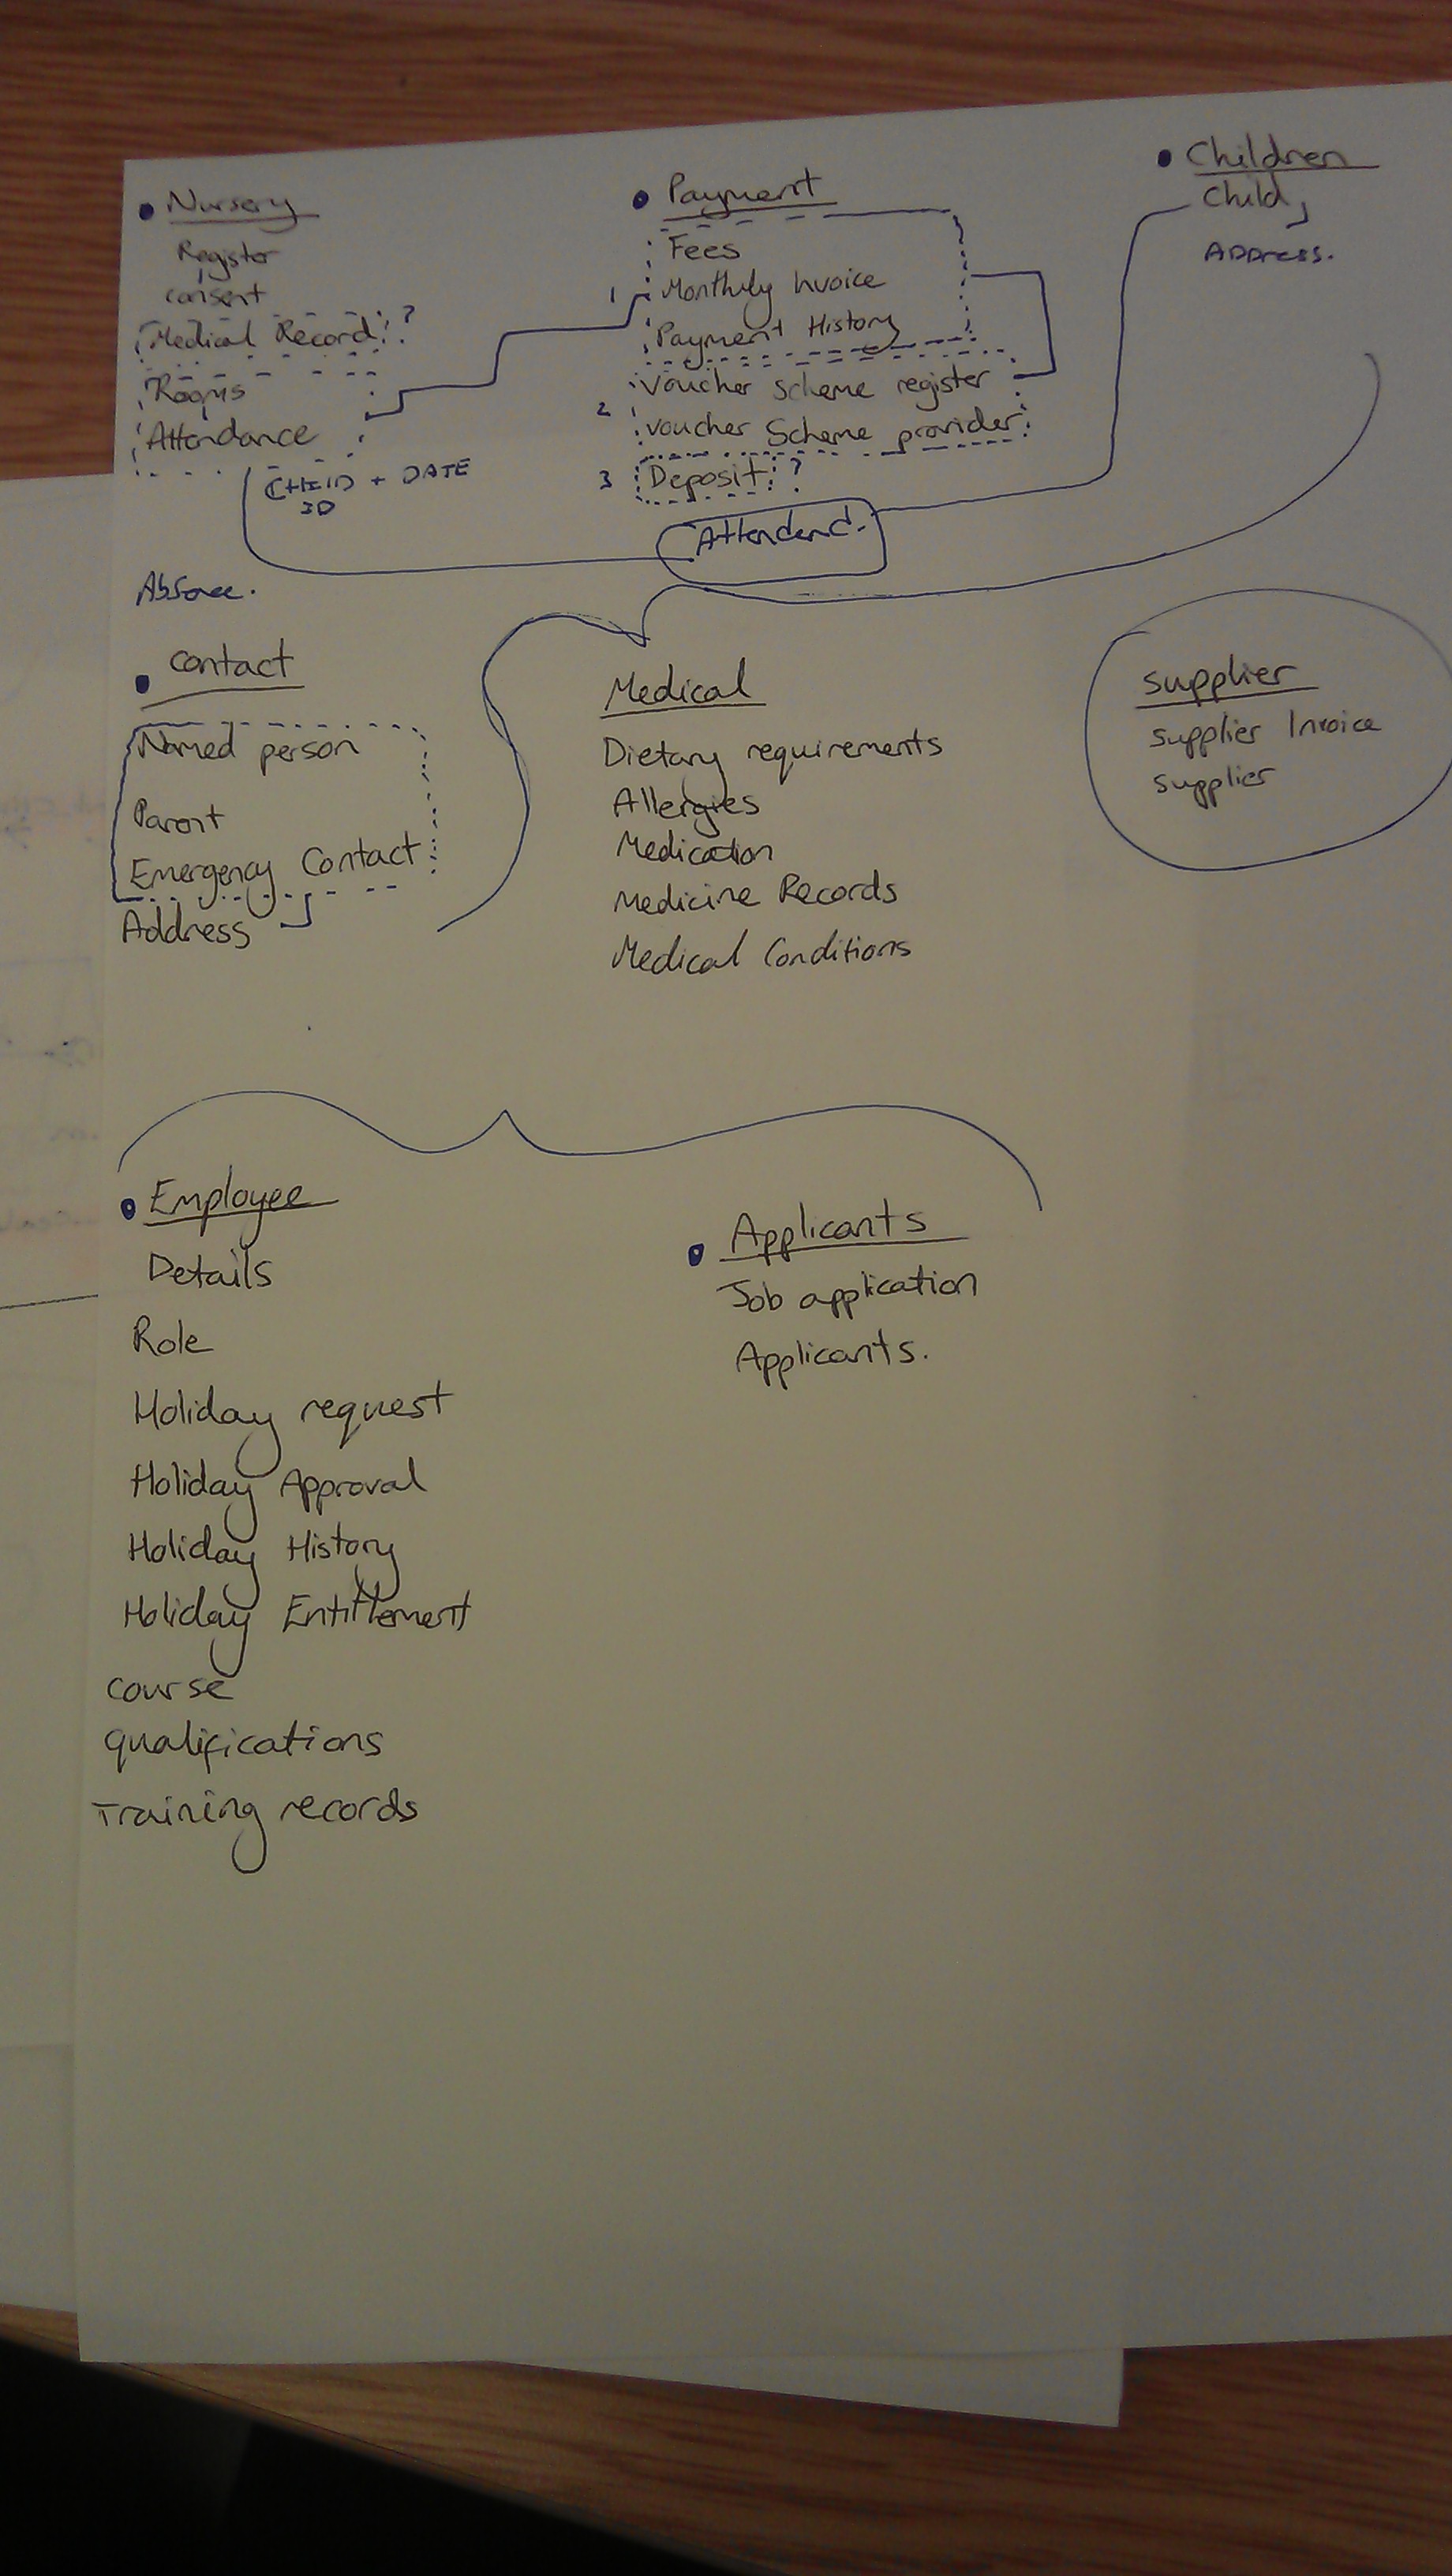 Nursery
Register
consent
Medical Record ?
Rooms
Attendance
CHILD + DATE
ID
Absence.
Payment
Fees
1 Monthly Invoice
Payment History
Voucher Scheme register
2 Voucher Scheme provider
3 Deposit ?
Attendend.
Children
Child
ADDress.
Contact
Named person
Parent
Emergency Contact
Address
Medical
Dietary requirements
Allergies
Medication
Medicine Records
Medical Conditions
Supplier
Supplier Invoice
Supplier
Employee
Details
Role
Holiday request
Holiday Approval
Holiday History
Holiday Entitlement
Course
qualifications
Training records
Applicants
Job application
Applicants.